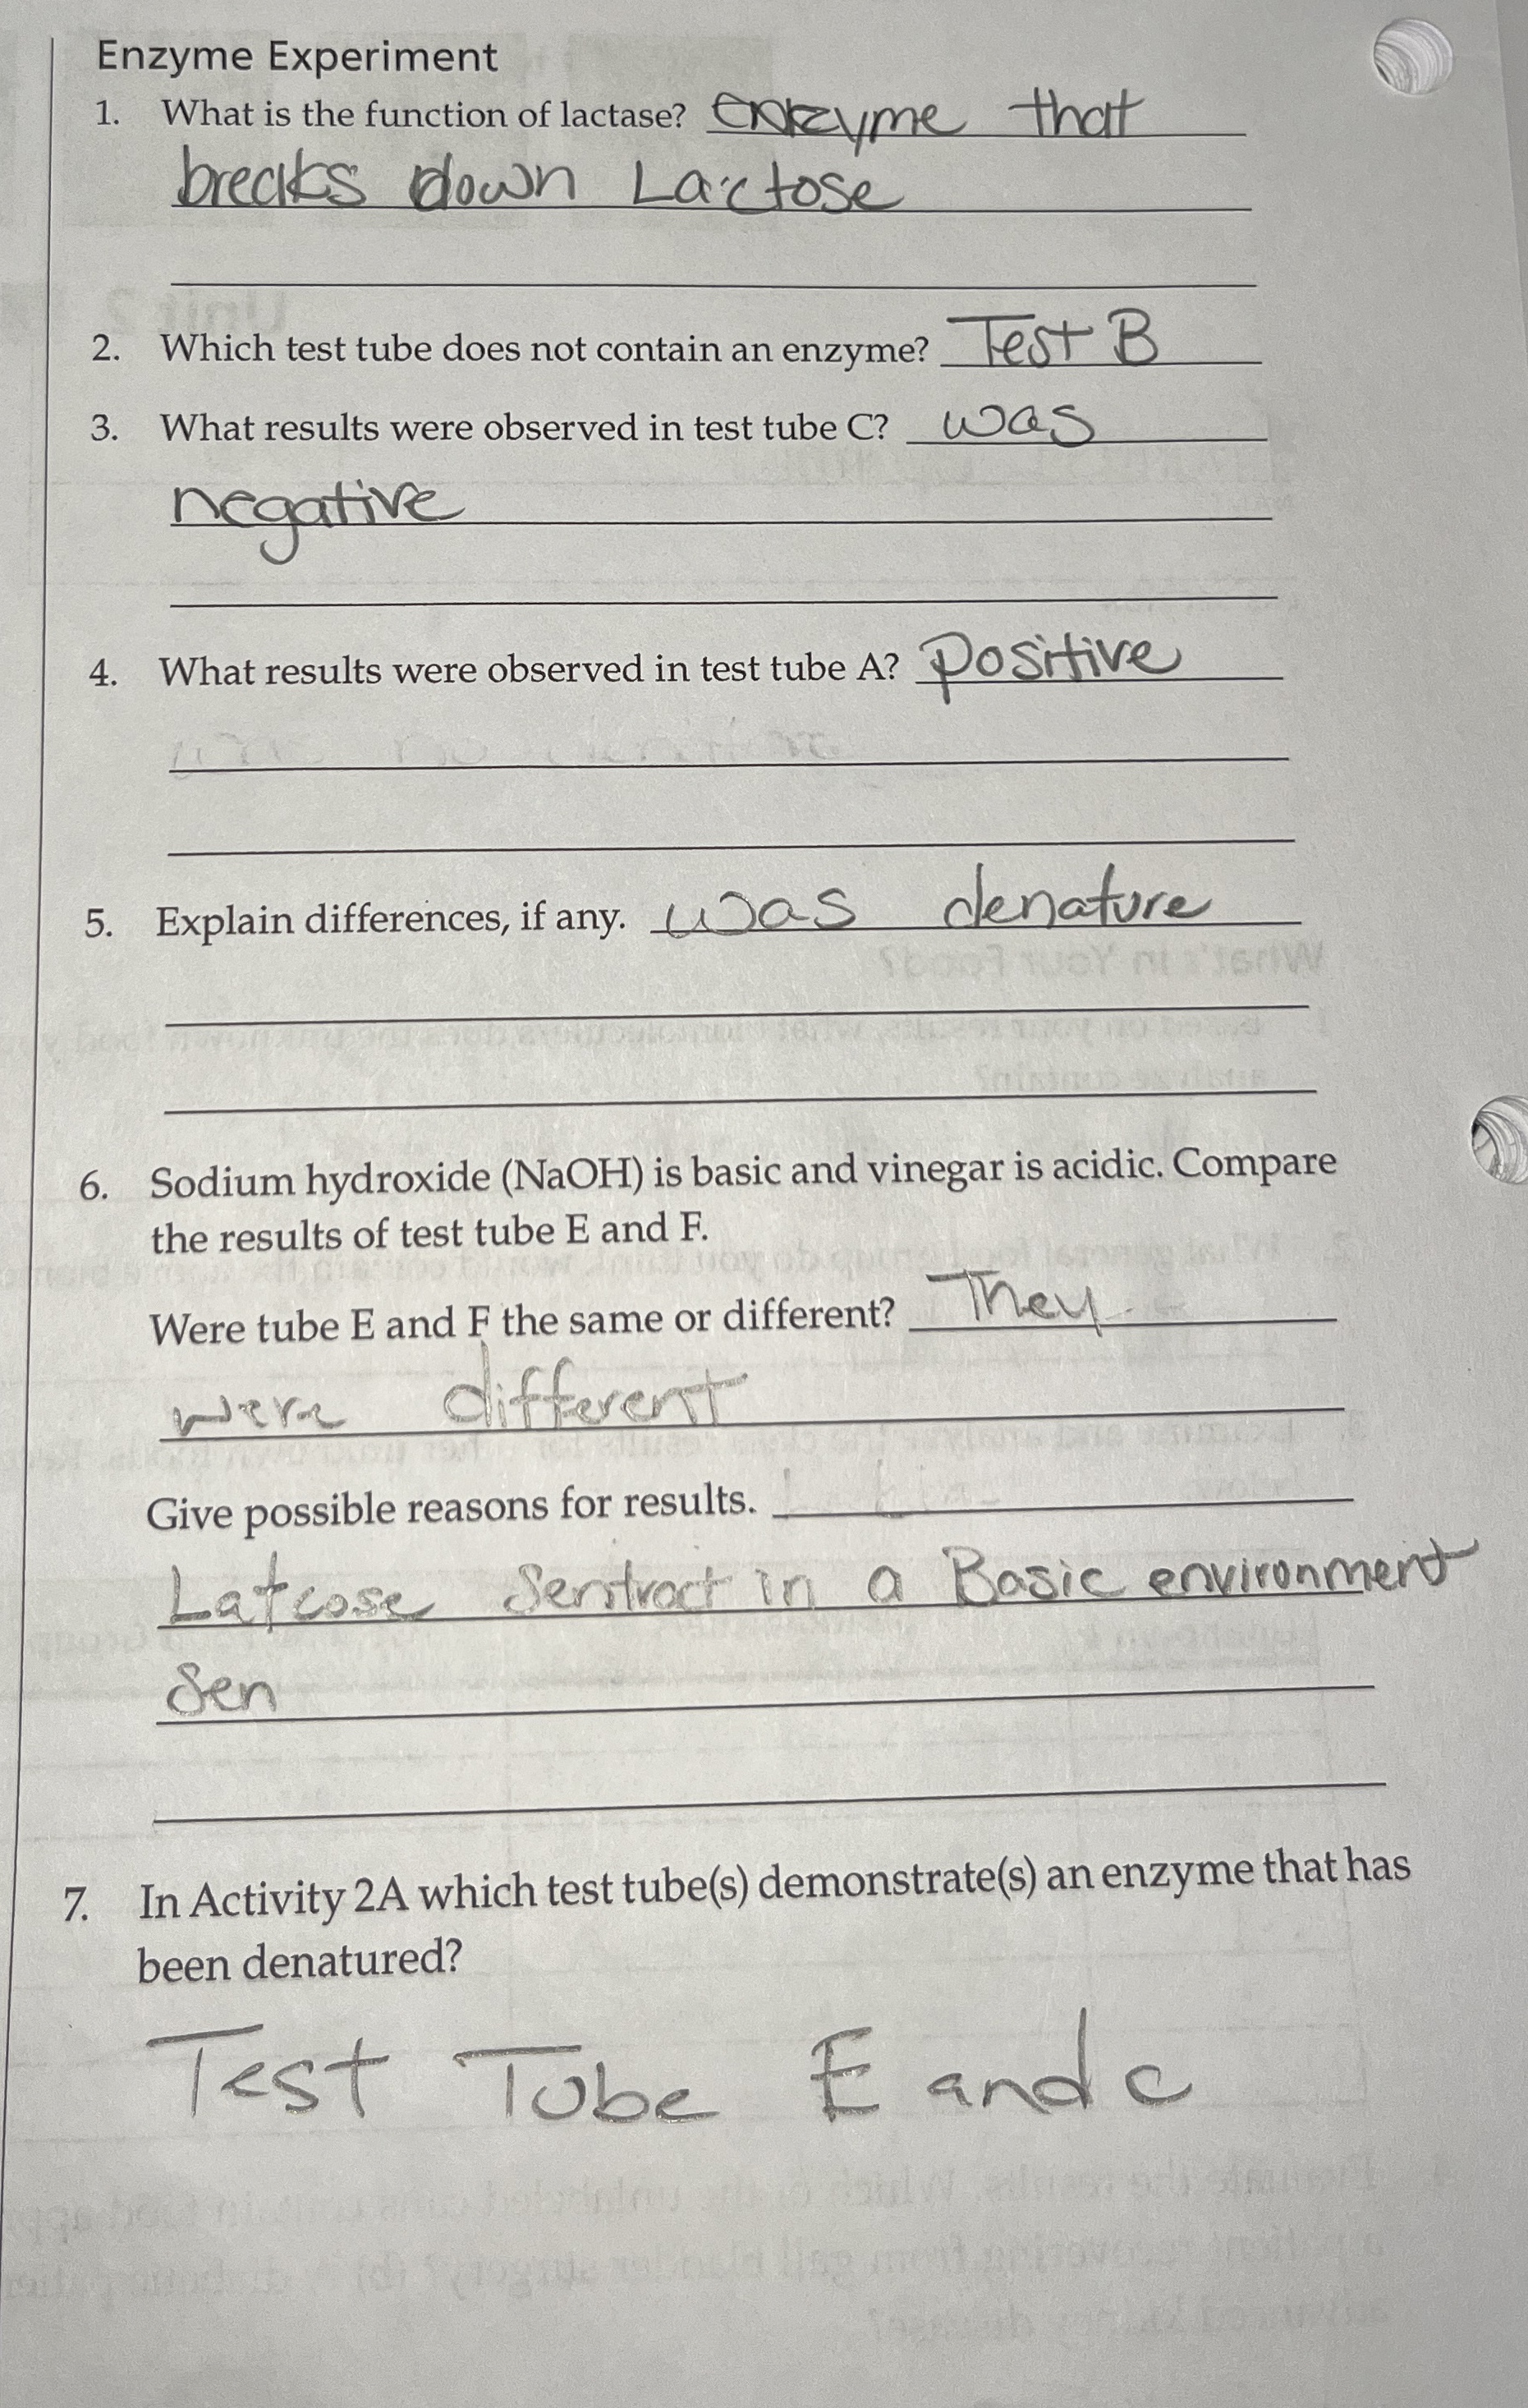 Enzyme Experiment
1. What is the function of lactase? enzyme that
breaks down Lactose
2. Which test tube does not contain an enzyme? Test B
3. What results were observed in test tube C? was
negative
4. What results were observed in test tube A? positive
5. Explain differences, if any. was denature
6. Sodium hydroxide (NaOH) is basic and vinegar is acidic. Compare
the results of test tube E and F.
Were tube E and F the same or different? They
were different
Give possible reasons for results.
Latcose in a Basic environment
Sen
7. In Activity 2A which test tube(s) demonstrate(s) an enzyme that has
been denatured?
Test Tube E and c